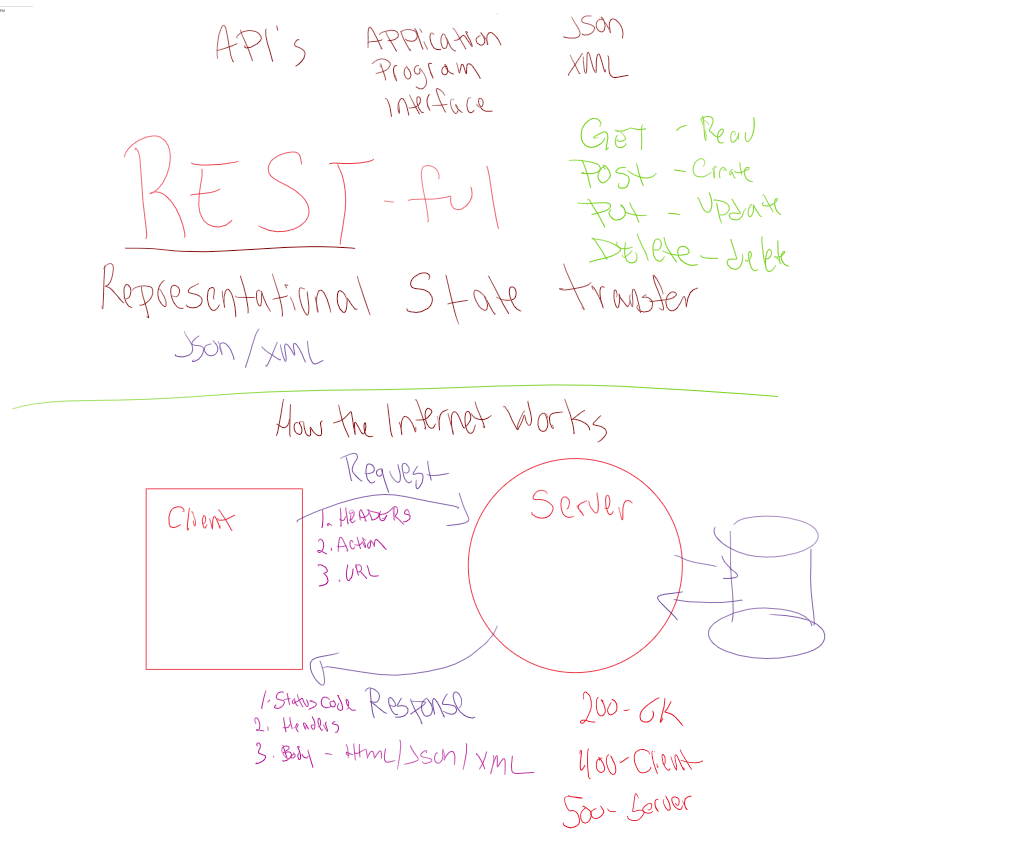 API's
Application
Program
Interface
Json
XML
REST-ful
GET - Read
Post - Create
Put - Update
Delete - delete
Representational State transfer
Json / XML
How the Internet Works
Request
Client
1. HEADERS
2. Action
3. URL
Server
Response
1. Status Code
2. Headers
3. Body - Html/Json/XML
200 - OK
400 - Client
500 - Server